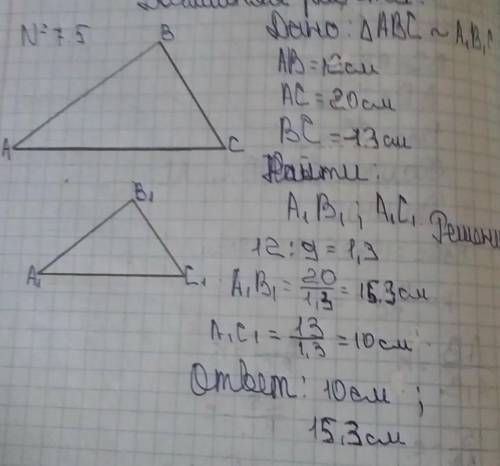 № 7.5
B
A
C
B₁
A₁
C₁
Дано: ΔABC ~ A₁B₁C
AB = 12см
AC = 20см
BC = 13см
Найти:
A₁B₁ ; A₁C₁ Решени
12 : 9 = 1,3
A₁B₁ = 20/1,3 = 15.3см
A₁C₁ = 13/1,3 = 10см
Ответ: 10см ;
15,3см